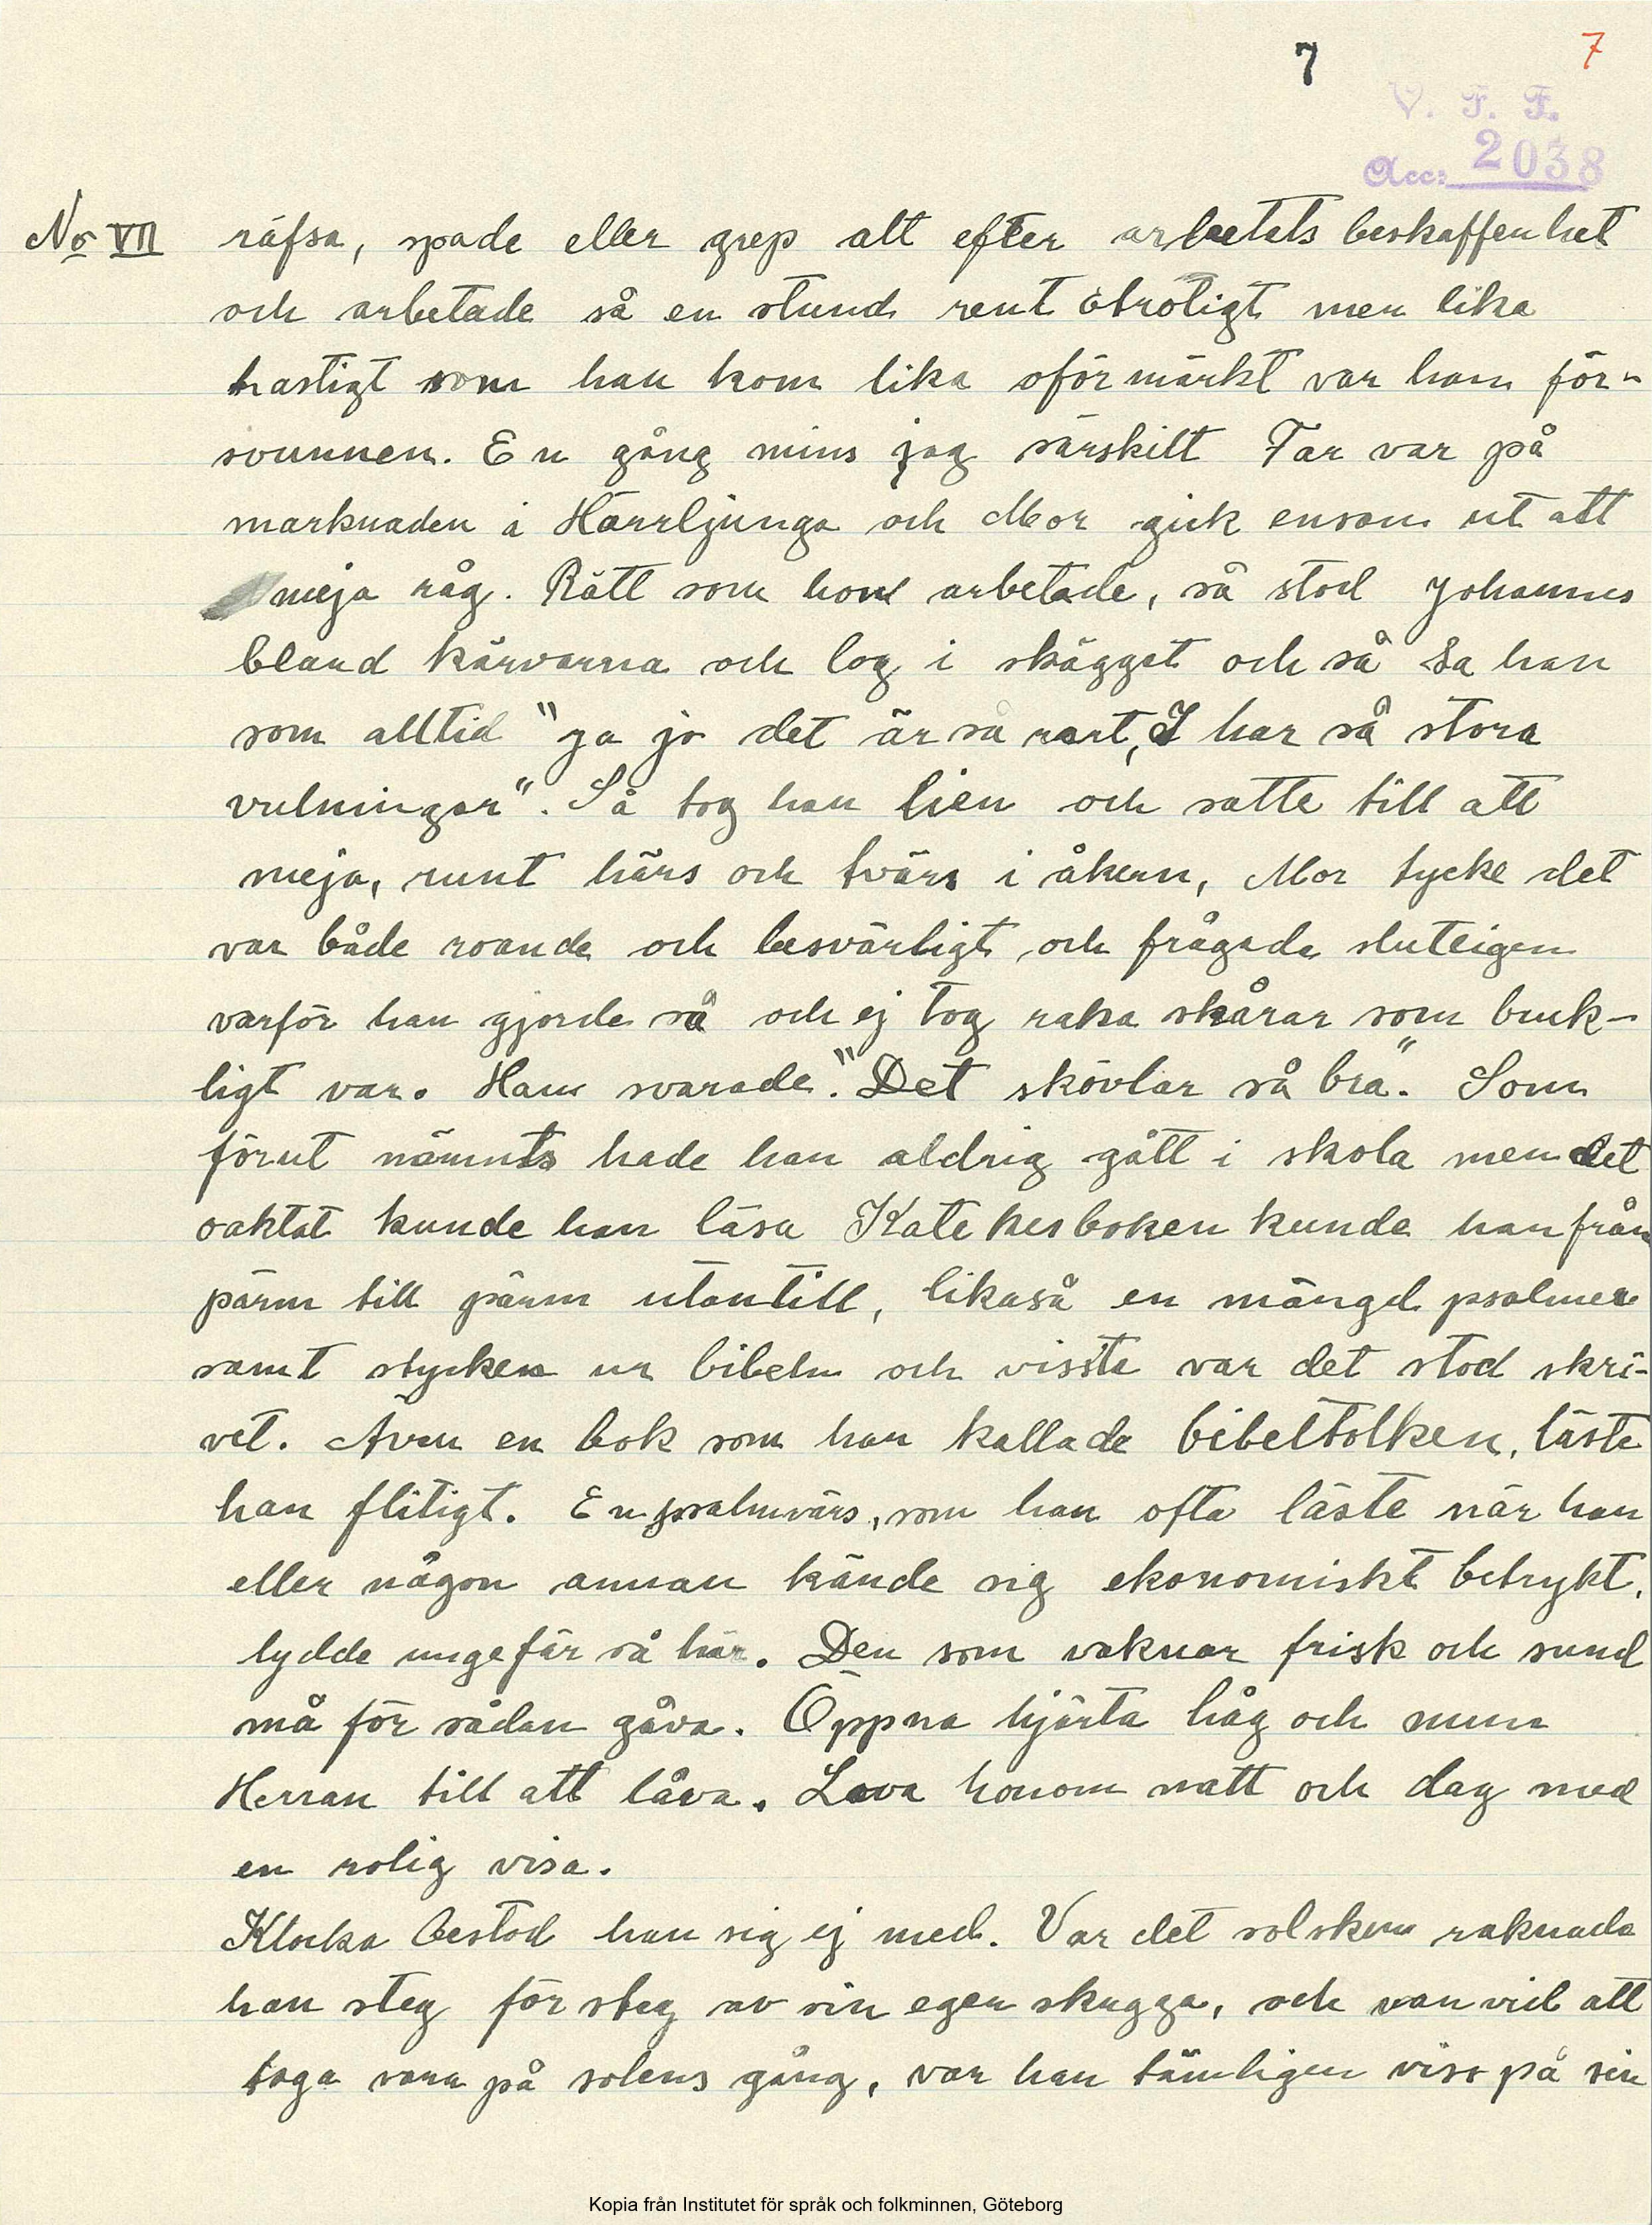 7 7
V. F. F.
Acc: 2038
No VII räfsa, spade eller grep allt efter arbetets beskaffenhet
och arbetade så en stund rent otroligt men lika
hastigt som han kom lika oförmärkt var han för-
svunnen. En gång mins jag särskilt Far var på
marknaden i Härrljunga och Mor gick ensam ut att
meja råg. Rätt som hon arbetade, så stod Johannes
bland kärvarna och log i skägget och så sa han
som alltid "ja jo det är så rart, I har så stora
vulningar". Så tog han lien och satte till att
meja, runt härs och tvärs i åkern, Mor tycke det
var både roande och besvärligt och frågade slutligen
varför han gjorde så och ej tog raka skårar som bruk-
ligt var. Han svarade. "Det skövlar så bra". Som
förut nämnts hade han aldrig gått i skola men det
oaktat kunde han läsa Katekesboken kunde han från
pärm till pärm utantill, likaså en mängd psalmer
samt stycken ur bibeln och visste var det stod skri-
vet. Även en bok som han kallade bibeltolken, läste
han flitigt. En psalmvärs, som han ofta läste när han
eller någon annan kände sig ekonomiskt betrykt,
lydde ungefär så här. Den som vaknar frisk och sund
må för sådan gåva. Öppna hjärta håg och mun
Herran till att låva. Lova honom natt och dag med
en rolig visa.
Klocka bestod han sig ej med. Var det solsken räknade
han steg för steg av sin egen skugga, och van vid att
taga vara på solens gång, var han tämligen viss på sin
Kopia från Institutet för språk och folkminnen, Göteborg